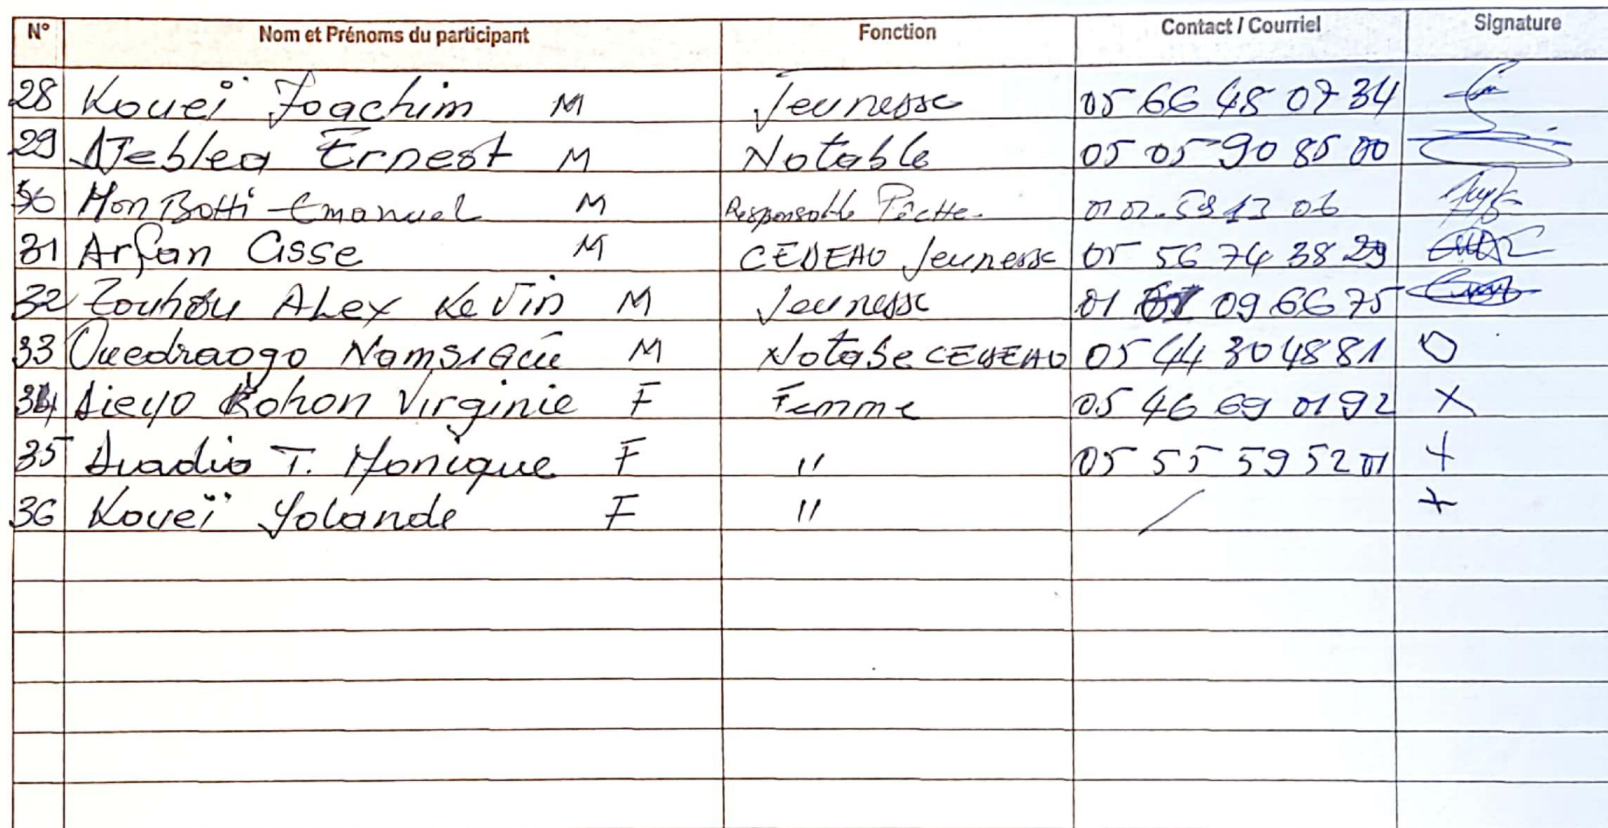 N° Nom et Prénoms du participant Fonction Contact / Courriel Signature
28 Koueï Joachim M Jeunesse 05 66 48 07 34
29 Ernest M Notable 05 05 90 85 00
30 Mon Botti-Emanuel M Responsable 01 02. 59 13 06
31 Arfan Cisse M CEDEAO Jeunesse 05 56 74 38 29
32 Zouhou Alex Kevin M Jeunesse 01 09 66 75
33 Ouedraogo M CEDEAO 05 44 30 48 81
34 Dieyo Kohon Virginie F Femme 05 46 69 01 92 X
35 Duadio T. Monique F " 05 55 59 52 01 +
36 Koueï Yolande F " / +